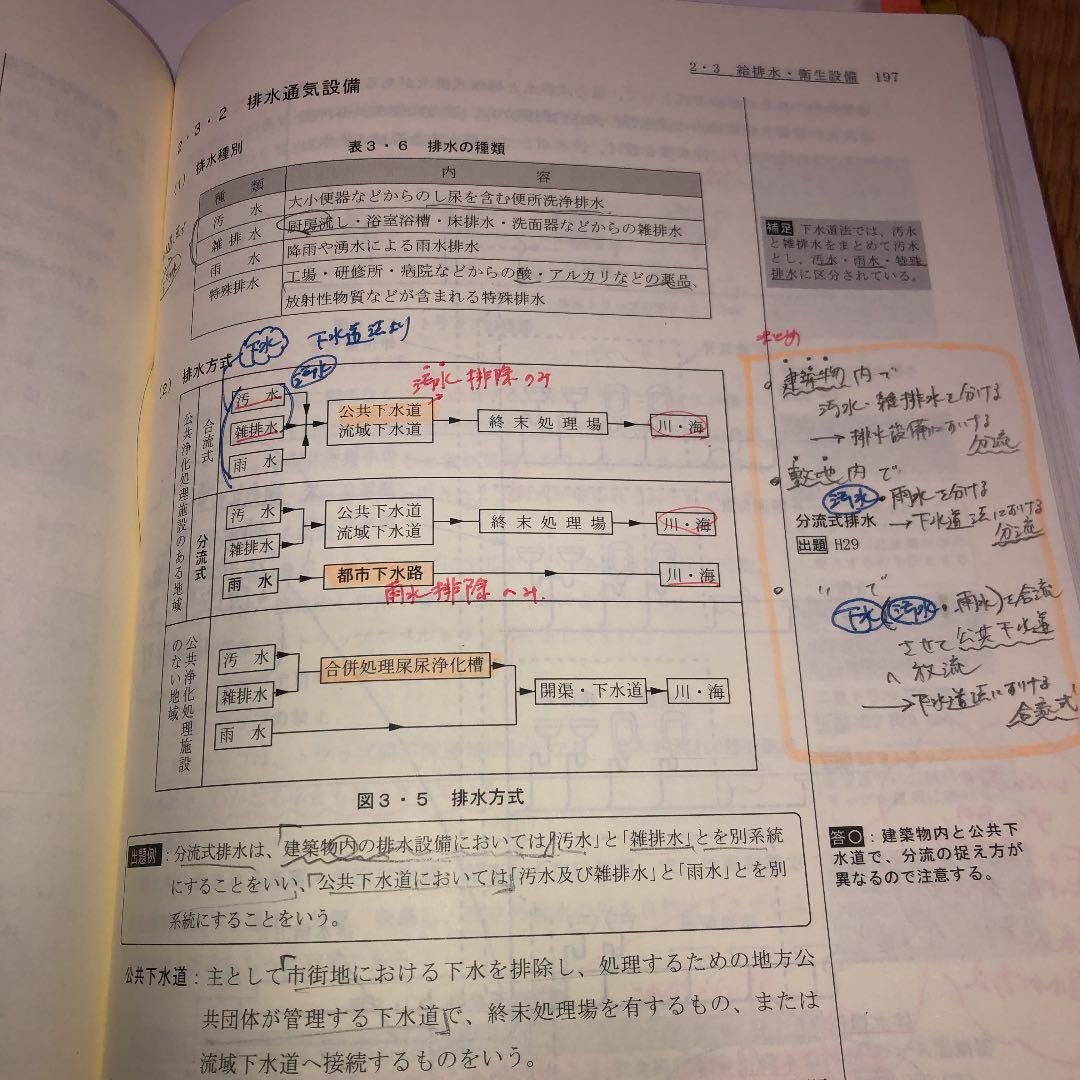 2・3 給排水・衛生設備 197
2・3・2 排水通気設備
(1) 排水種別
表3・6 排水の種類
種類 内容
汚水 大小便器などからのし尿を含む便所洗浄排水
雑排水 厨房流し・浴室浴槽・床排水・洗面器などからの雑排水
雨水 降雨や湧水による雨水排水
特殊排水 工場・研修所・病院などからの酸・アルカリなどの薬品、
放射性物質などが含まれる特殊排水
補足 下水道法では、汚水
と雑排水をまとめて汚水
とし、汚水・雨水・特殊
排水に区分されている。
(2) 排水方式
下水 下水道法より
汚水
汚水排除のみ
公共浄化処理施設のある地域
合流式
汚水
雑排水
雨水
公共下水道
流域下水道
終末処理場
川・海
分流式
汚水
雑排水
公共下水道
流域下水道
終末処理場
川・海
雨水
都市下水路
川・海
雨水排除のみ
公共浄化処理施設
のない地域
汚水
雑排水
雨水
合併処理屎尿浄化槽
開渠・下水道
川・海
図3・5 排水方式
まとめ
建築物内で
汚水・雑排水を分ける
→排水設備における
分流
敷地内で
汚水・雨水を分ける
→下水道法における
分流
分流式排水
出題 H29
〃で
下水(汚水・雨水)を合流
させて公共下水道
へ放流
→下水道法における
合流式
出題例:分流式排水は、建築物内の排水設備においては「汚水」と「雑排水」とを別系統
にすることをいい、公共下水道においては「汚水及び雑排水」と「雨水」とを別
系統にすることをいう。
答○:建築物内と公共下
水道で、分流の捉え方が
異なるので注意する。
公共下水道:主として市街地における下水を排除し、処理するための地方公
共団体が管理する下水道で、終末処理場を有するもの、または
流域下水道へ接続するものをいう。